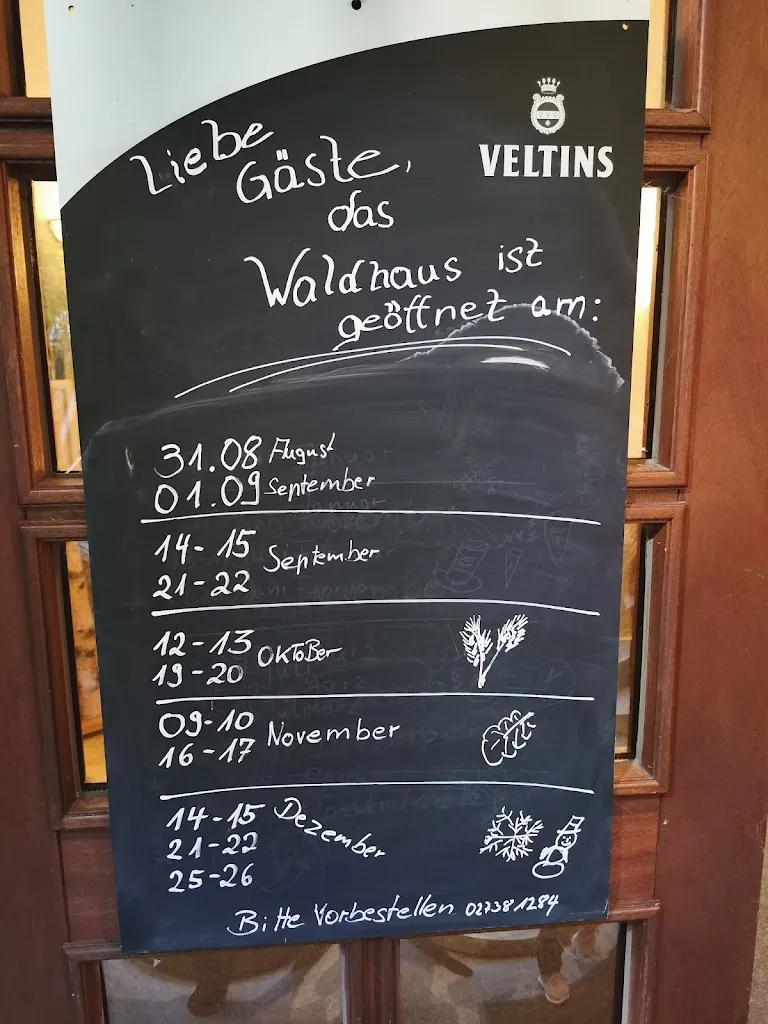 VELTINS
Liebe
Gäste,
das
Waldhaus ist
geöffnet am:
31.08 August
01.09 September
14-15 September
21-22
12-13 OKTOBer
19-20
09-10 November
16-17
14-15 Dezember
21-22
25-26
Bitte Vorbestellen 02738 1284